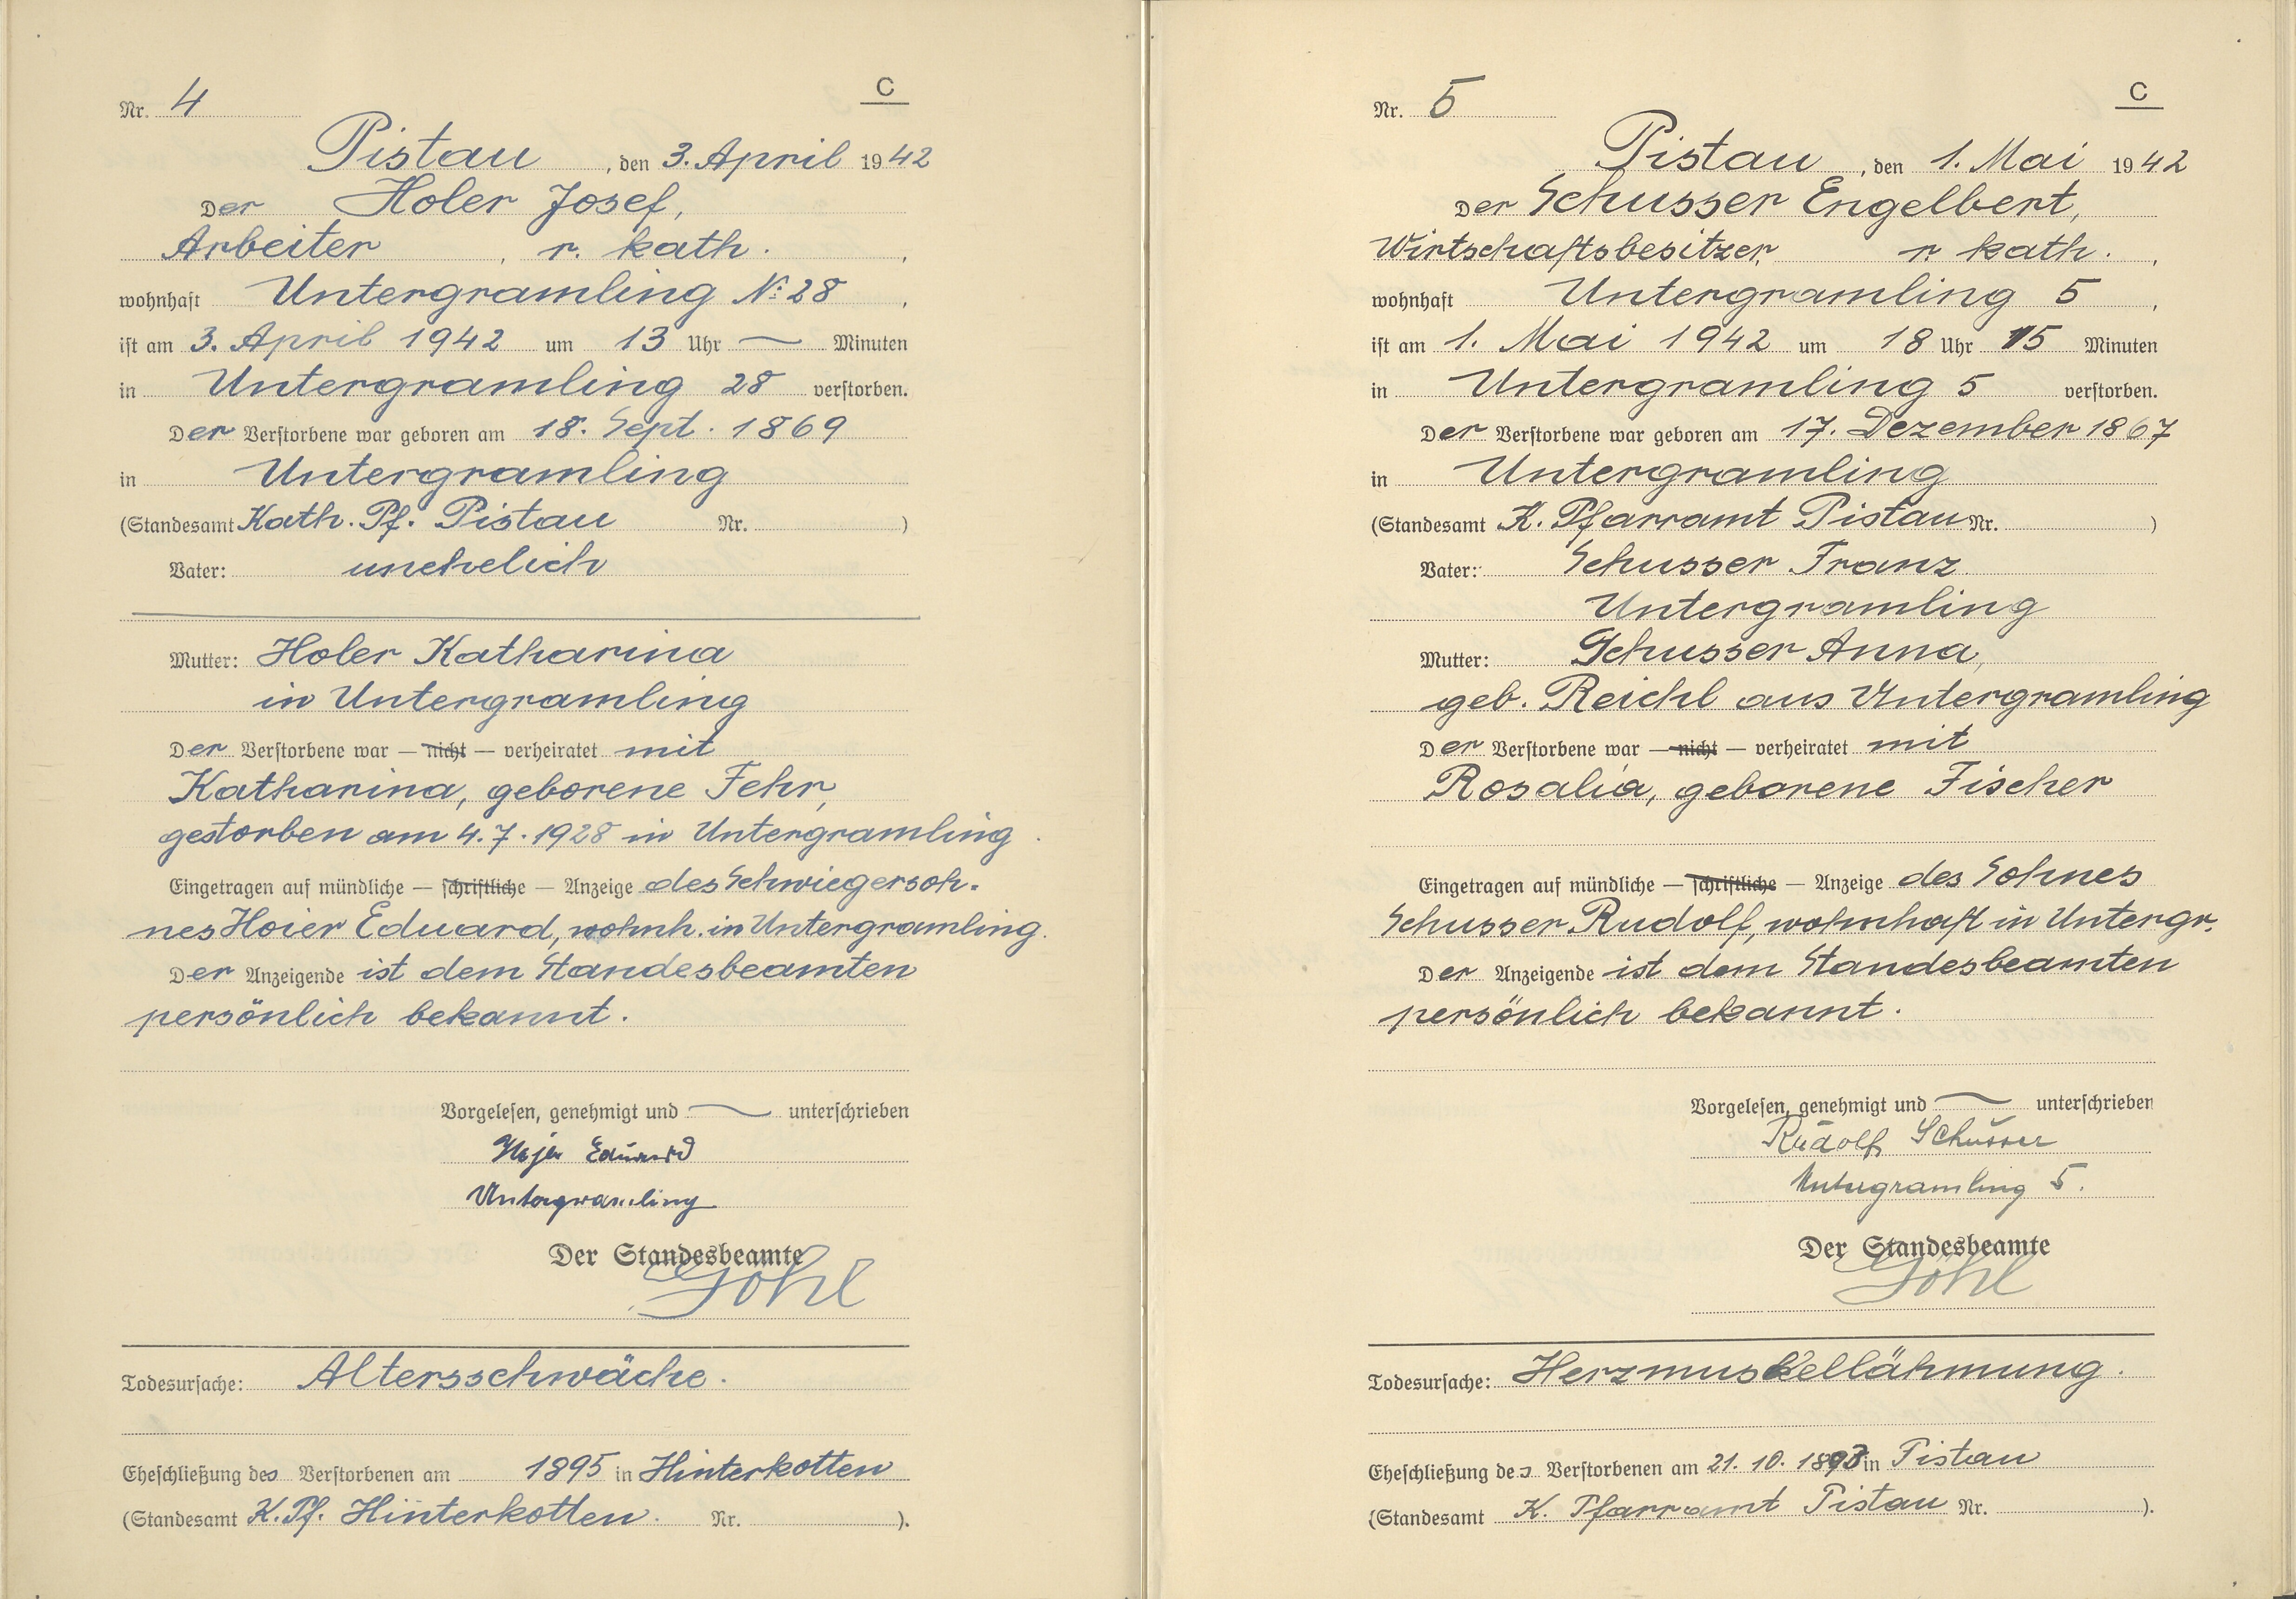 C
Nr. 4
Pistau, den 3. April 1942
Der Holer Josef,
Arbeiter, r. kath.,
wohnhaft Untergramling No: 28,
ist am 3. April 1942 um 13 Uhr — Minuten
in Untergramling 28 verstorben.
Der Verstorbene war geboren am 18. Sept. 1869
in Untergramling
(Standesamt Kath. Pf. Pistau Nr. )
Vater: unehelich
Mutter: Holer Katharina
in Untergramling
Der Verstorbene war — nicht — verheiratet mit
Katharina, geborene Fehr,
gestorben am 4.7.1928 in Untergramling.
Eingetragen auf mündliche — schriftliche — Anzeige des Schwiegersoh-
nes Hoier Eduard, wohnh. in Untergramling.
Der Anzeigende ist dem Standesbeamten
persönlich bekannt.
Vorgelesen, genehmigt und — unterschrieben
Eduard
Untergramling
Der Standesbeamte
Göhl
Todesursache: Altersschwäche.
Eheschließung des Verstorbenen am 1895 in Hinterkotten
(Standesamt K. Pf. Hinterkotten. Nr. ).
C
Nr. 5
Pistau, den 1. Mai 1942
Der Schusser Engelbert,
Wirtschaftsbesitzer, r. kath.,
wohnhaft Untergramling 5,
ist am 1. Mai 1942 um 18 Uhr 15 Minuten
in Untergramling 5 verstorben.
Der Verstorbene war geboren am 17. Dezember 1867
in Untergramling
(Standesamt K. Pfarramt Pistau Nr. )
Vater: Schusser Franz
Untergramling
Mutter: Schusser Anna,
geb. Reichl aus Untergramling
Der Verstorbene war — nicht — verheiratet mit
Rosalia, geborene Fischer
Eingetragen auf mündliche — schriftliche — Anzeige des Sohnes
Schusser Rudolf, wohnhaft in Untergr.
Der Anzeigende ist dem Standesbeamten
persönlich bekannt.
Vorgelesen, genehmigt und — unterschrieben
Rudolf Schusser
Untergramling 5.
Der Standesbeamte
Göhl
Todesursache: Herzmuskellähmung.
Eheschließung des Verstorbenen am 21. 10. in Pistau
(Standesamt K. Pfarramt Pistau Nr. ).